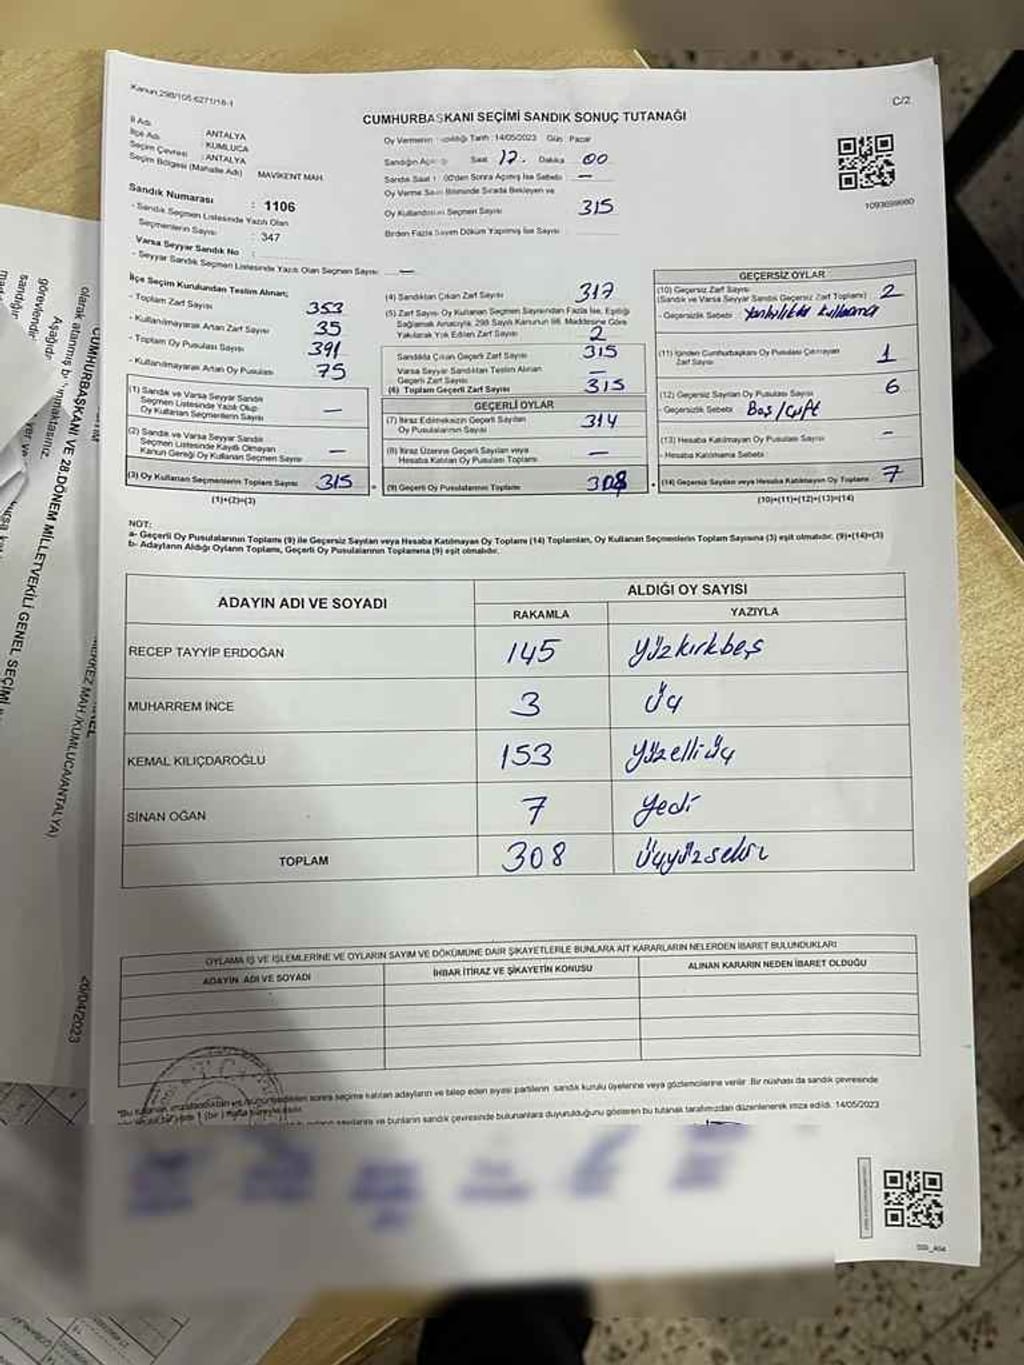 Kanun 298/105-6271/18-1
C/2
CUMHURBAŞKANI SEÇİMİ SANDIK SONUÇ TUTANAĞI
İl Adı ANTALYA
İlçe Adı KUMLUCA
Seçim Çevresi : ANTALYA
Seçim Bölgesi (Mahalle Adı) MAVİKENT MAH.
Oy Vermenin Tarih :14/05/2023 Gün: Pazar
Sandığın Saat 17. Dakika 00
Sandık Saat Sonra Açılmış İse Sebebi —
Oy Verme Bitiminde Sırada Bekleyen ve
Oy Kullandırılan Seçmen Sayısı 315
Birden Fazla Sayım Döküm Yapılmış İse Sayısı
1093699960
Sandık Numarası : 1106
- Sandık Seçmen Listesinde Yazılı Olan
Seçmenlerin Sayısı : 347
Varsa Seyyar Sandık No :
- Seyyar Sandık Seçmen Listesinde Yazılı Olan Seçmen Sayısı —
İlçe Seçim Kurulundan Teslim Alınan;
- Toplam Zarf Sayısı 353
- Kullanılmayarak Artan Zarf Sayısı 35
- Toplam Oy Pusulası Sayısı 391
- Kullanılmayarak Artan Oy Pusulası 75
(1) Sandık ve Varsa Seyyar Sandık
Seçmen Listesinde Yazılı Olup
Oy Kullanan Seçmenlerin Sayısı —
(2) Sandık ve Varsa Seyyar Sandık
Seçmen Listesinde Kayıtlı Olmayan
Kanun Gereği Oy Kullanan Seçmen Sayısı —
(3) Oy Kullanan Seçmenlerin Toplam Sayısı 315
(1)+(2)=(3)
(4) Sandıktan Çıkan Zarf Sayısı 317
(5) Zarf Sayısı Oy Kullanan Seçmen Sayısından Fazla İse, Eşitliği
Sağlamak Amacıyla, 298 Sayılı Kanunun 98. Maddesine Göre
Yakılarak Yok Edilen Zarf Sayısı 2
Sandıkta Çıkan Geçerli Zarf Sayısı 315
Varsa Seyyar Sandıktan Teslim Alınan
Geçerli Zarf Sayısı —
(6) Toplam Geçerli Zarf Sayısı 315
GEÇERLİ OYLAR
(7) İtiraz Edilmeksizin Geçerli Sayılan
Oy Pusulalarının Sayısı 314
(8) İtiraz Üzerine Geçerli Sayılan veya
Hesaba Katılan Oy Pusulaları Toplamı —
(9) Geçerli Oy Pusulalarının Toplamı 308
GEÇERSİZ OYLAR
(10) Geçersiz Zarf Sayısı
(Sandık ve Varsa Seyyar Sandık Geçersiz Zarf Toplamı) 2
- Geçersizlik Sebebi : Yanlışlıkla kullanma
(11) İçinden Cumhurbaşkanı Oy Pusulası Çıkmayan
Zarf Sayısı 1
(12) Geçersiz Sayılan Oy Pusulası Sayısı 6
- Geçersizlik Sebebi Boş / Çift
(13) Hesaba Katılmayan Oy Pusulası Sayısı —
- Hesaba Katılmama Sebebi
(14) Geçersiz Sayılan veya Hesaba Katılmayan Oy Toplamı 7
(10)+(11)+(12)+(13)=(14)
NOT:
a- Geçerli Oy Pusulalarının Toplamı (9) ile Geçersiz Sayılan veya Hesaba Katılmayan Oy Toplamı (14) Toplamları, Oy Kullanan Seçmenlerin Toplam Sayısına (3) eşit olmalıdır. (9)+(14)=(3)
b- Adayların Aldığı Oyların Toplamı, Geçerli Oy Pusulalarının Toplamına (9) eşit olmalıdır.
ADAYIN ADI VE SOYADI
ALDIĞI OY SAYISI
RAKAMLA YAZIYLA
RECEP TAYYİP ERDOĞAN 145 Yüzkırkbeş
MUHARREM İNCE 3 Üç
KEMAL KILIÇDAROĞLU 153 Yüzelliüç
SİNAN OĞAN 7 Yedi
TOPLAM 308 Üçyüzsekiz
OYLAMA İŞ VE İŞLEMLERİNE VE OYLARIN SAYIM VE DÖKÜMÜNE DAİR ŞİKAYETLERLE BUNLARA AİT KARARLARIN NELERDEN İBARET BULUNDUKLARI
ADAYIN ADI VE SOYADI
İHBAR İTİRAZ VE ŞİKAYETİN KONUSU
ALINAN KARARIN NEDEN İBARET OLDUĞU
T.C.
sonra seçime katılan adayların ve talep eden siyasi partilerin sandık kurulu üyelerine veya gözlemcilerine verilir. Bir nüshası da sandık çevresinde
1 (bir) hafta süreyle asılır.
ve bunların sandık çevresinde bulunanlara duyurulduğunu gösteren bu tutanak tarafımızdan düzenlenerek imza edildi. 14/05/2023
CUMHURBAŞKANI VE 28.DÖNEM MİLLETVEKİLİ GENEL SEÇİMİ
olarak atanmış
Aşağıda
görevlendir
sandığın
MERKEZ MAH./KUMLUCA/ANTALYA)
/04/2023